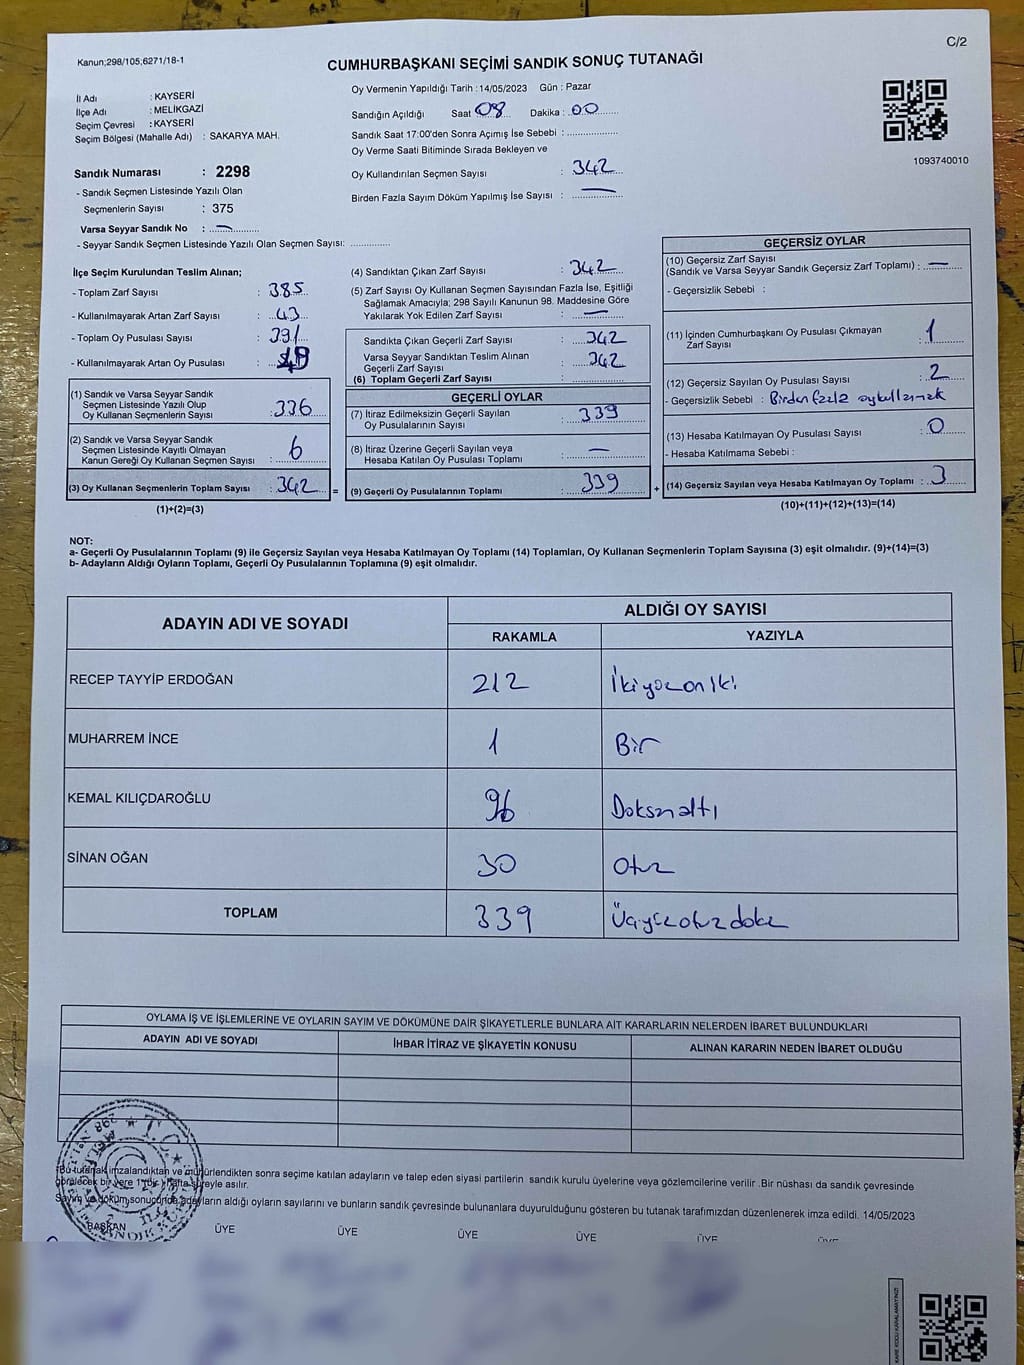 C/2
Kanun;298/105;6271/18-1
CUMHURBAŞKANI SEÇİMİ SANDIK SONUÇ TUTANAĞI
İl Adı : KAYSERİ
İlçe Adı : MELİKGAZİ
Seçim Çevresi : KAYSERİ
Seçim Bölgesi (Mahalle Adı) : SAKARYA MAH.
Sandık Numarası : 2298
- Sandık Seçmen Listesinde Yazılı Olan
Seçmenlerin Sayısı : 375
Varsa Seyyar Sandık No : —
- Seyyar Sandık Seçmen Listesinde Yazılı Olan Seçmen Sayısı: ..............
Oy Vermenin Yapıldığı Tarih : 14/05/2023 Gün : Pazar
Sandığın Açıldığı Saat 08 Dakika : 00
Sandık Saat 17:00'den Sonra Açımış İse Sebebi : ..................
Oy Verme Saati Bitiminde Sırada Bekleyen ve
Oy Kullandırılan Seçmen Sayısı : 342
Birden Fazla Sayım Döküm Yapılmış İse Sayısı : —
1093740010
İlçe Seçim Kurulundan Teslim Alınan;
- Toplam Zarf Sayısı : 385
- Kullanılmayarak Artan Zarf Sayısı : 43
- Toplam Oy Pusulası Sayısı : 391
- Kullanılmayarak Artan Oy Pusulası :
(1) Sandık ve Varsa Seyyar Sandık
Seçmen Listesinde Yazılı Olup
Oy Kullanan Seçmenlerin Sayısı : 336
(2) Sandık ve Varsa Seyyar Sandık
Seçmen Listesinde Kayıtlı Olmayan
Kanun Gereği Oy Kullanan Seçmen Sayısı : 6
(3) Oy Kullanan Seçmenlerin Toplam Sayısı : 342 =
(1)+(2)=(3)
(4) Sandıktan Çıkan Zarf Sayısı : 342
(5) Zarf Sayısı Oy Kullanan Seçmen Sayısından Fazla İse, Eşitliği
Sağlamak Amacıyla; 298 Sayılı Kanunun 98. Maddesine Göre
Yakılarak Yok Edilen Zarf Sayısı : —
Sandıkta Çıkan Geçerli Zarf Sayısı : 342
Varsa Seyyar Sandıktan Teslim Alınan
Geçerli Zarf Sayısı : 342
(6) Toplam Geçerli Zarf Sayısı : ..............
GEÇERLİ OYLAR
(7) İtiraz Edilmeksizin Geçerli Sayılan
Oy Pusulalarının Sayısı : 339
(8) İtiraz Üzerine Geçerli Sayılan veya
Hesaba Katılan Oy Pusulası Toplamı : —
(9) Geçerli Oy Pusulalarının Toplamı : 339 +
GEÇERSİZ OYLAR
(10) Geçersiz Zarf Sayısı
(Sandık ve Varsa Seyyar Sandık Geçersiz Zarf Toplamı) : —
- Geçersizlik Sebebi :
(11) İçinden Cumhurbaşkanı Oy Pusulası Çıkmayan
Zarf Sayısı : 1
(12) Geçersiz Sayılan Oy Pusulası Sayısı : 2
- Geçersizlik Sebebi : Birden fazla oy kullanmak
(13) Hesaba Katılmayan Oy Pusulası Sayısı : 0
- Hesaba Katılmama Sebebi :
(14) Geçersiz Sayılan veya Hesaba Katılmayan Oy Toplamı : 3
(10)+(11)+(12)+(13)=(14)
NOT:
a- Geçerli Oy Pusulalarının Toplamı (9) ile Geçersiz Sayılan veya Hesaba Katılmayan Oy Toplamı (14) Toplamları, Oy Kullanan Seçmenlerin Toplam Sayısına (3) eşit olmalıdır. (9)+(14)=(3)
b- Adayların Aldığı Oyların Toplamı, Geçerli Oy Pusulalarının Toplamına (9) eşit olmalıdır.
ADAYIN ADI VE SOYADI ALDIĞI OY SAYISI
RAKAMLA YAZIYLA
RECEP TAYYİP ERDOĞAN 212 İkiyüzoniki
MUHARREM İNCE 1 Bir
KEMAL KILIÇDAROĞLU 96 Doksanaltı
SİNAN OĞAN 30 Otuz
TOPLAM 339 Üçyüzotuzdokuz
OYLAMA İŞ VE İŞLEMLERİNE VE OYLARIN SAYIM VE DÖKÜMÜNE DAİR ŞİKAYETLERLE BUNLARA AİT KARARLARIN NELERDEN İBARET BULUNDUKLARI
ADAYIN ADI VE SOYADI İHBAR İTİRAZ VE ŞİKAYETİN KONUSU ALINAN KARARIN NEDEN İBARET OLDUĞU
Bu tutanak imzalandıktan ve mühürlendikten sonra seçime katılan adayların ve talep eden siyasi partilerin sandık kurulu üyelerine veya gözlemcilerine verilir .Bir nüshası da sandık çevresinde
görülecek bir yere 1 (bir ) hafta süreyle asılır.
Sayım ve döküm sonucunda adayların aldığı oyların sayılarını ve bunların sandık çevresinde bulunanlara duyurulduğunu gösteren bu tutanak tarafımızdan düzenlenerek imza edildi. 14/05/2023
BAŞKAN ÜYE ÜYE ÜYE ÜYE ÜYE ÜYE